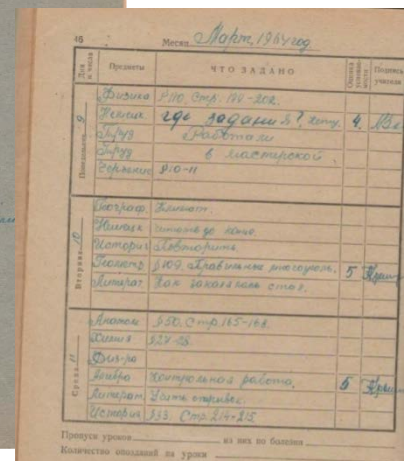 46 Месяц Март, 1964 год
Дни и числа Предметы ЧТО ЗАДАНО Оценка успеваемости Подпись учителя
Понедельник 9
Физика §110, Стр. 198-202.
Немецк где задания?, 4
Труд Работали
Труд в мастерской
Черчение §10-11
Вторник 10
Географ. Климат.
Немецк
Истори Повторить.
Геометр §109, Правильные многоугол. 5
Литерат Как закалялась стал.
Среда 11
Анатом §50. Стр. 165-168.
Химия §27-28.
Физ-ра
Алгебра Контрольная работа. 5
Литерат. Учить отрывок.
История §33. Стр. 214-215
Пропуск уроков из них по болезни
Количество опозданий на уроки